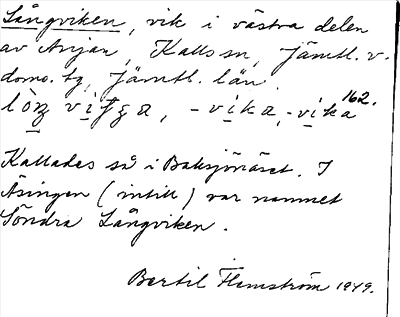 Långviken, vik i västra delen
av Anjan, Kalls sn, Jämtl. v.
doms. tg, Jämtl. län.
162.
Kallades så i Baksjönäset. I
Åsingen (intill) var namnet
Söndra Långviken.
Bertil Flemström 1949.